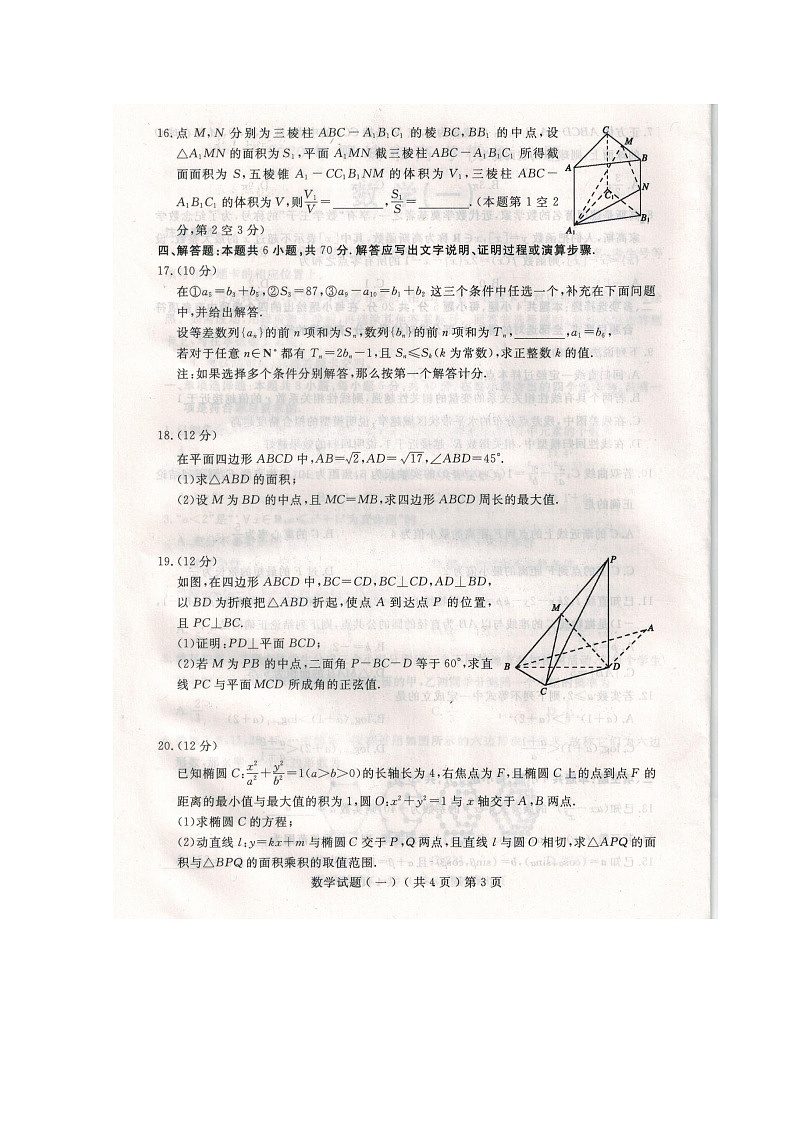 16.点 M,N 分别为三棱柱 ABC-A₁B₁C₁ 的棱 BC,BB₁ 的中点,设
△A₁MN 的面积为 S₁,平面 A₁MN 截三棱柱 ABC-A₁B₁C₁ 所得截
面面积为 S,五棱锥 A₁-CC₁B₁NM 的体积为 V₁,三棱柱 ABC-
A₁B₁C₁ 的体积为 V,则 V₁/V=______,S₁/S=______.(本题第 1 空 2
分,第 2 空 3 分)
C
M
B
A
N
C₁
B₁
A₁
四、解答题:本题共 6 小题,共 70 分.解答应写出文字说明、证明过程或演算步骤.
17.(10 分)
在①a₅=b₃+b₅,②S₃=87,③a₉-a₁₀=b₁+b₂ 这三个条件中任选一个,补充在下面问题
中,并给出解答.
设等差数列{aₙ}的前 n 项和为 Sₙ,数列{bₙ}的前 n 项和为 Tₙ,______,a₁=b₆,
若对于任意 n∈N* 都有 Tₙ=2bₙ-1,且 Sₙ≤Sₖ(k 为常数),求正整数 k 的值.
注:如果选择多个条件分别解答,那么按第一个解答计分.
18.(12 分)
在平面四边形 ABCD 中,AB=√2,AD=√17,∠ABD=45°.
(1)求△ABD 的面积;
(2)设 M 为 BD 的中点,且 MC=MB,求四边形 ABCD 周长的最大值.
19.(12 分)
如图,在四边形 ABCD 中,BC=CD,BC⊥CD,AD⊥BD,
以 BD 为折痕把△ABD 折起,使点 A 到达点 P 的位置,
且 PC⊥BC.
(1)证明:PD⊥平面 BCD;
(2)若 M 为 PB 的中点,二面角 P-BC-D 等于 60°,求直
线 PC 与平面 MCD 所成角的正弦值.
P
M
A
B
D
C
20.(12 分)
已知椭圆 C:x²/a²+y²/b²=1(a>b>0)的长轴长为 4,右焦点为 F,且椭圆 C 上的点到点 F 的
距离的最小值与最大值的积为 1,圆 O:x²+y²=1 与 x 轴交于 A,B 两点.
(1)求椭圆 C 的方程;
(2)动直线 l:y=kx+m 与椭圆 C 交于 P,Q 两点,且直线 l 与圆 O 相切,求△APQ 的面
积与△BPQ 的面积乘积的取值范围.
数学试题(一)(共 4 页)第 3 页